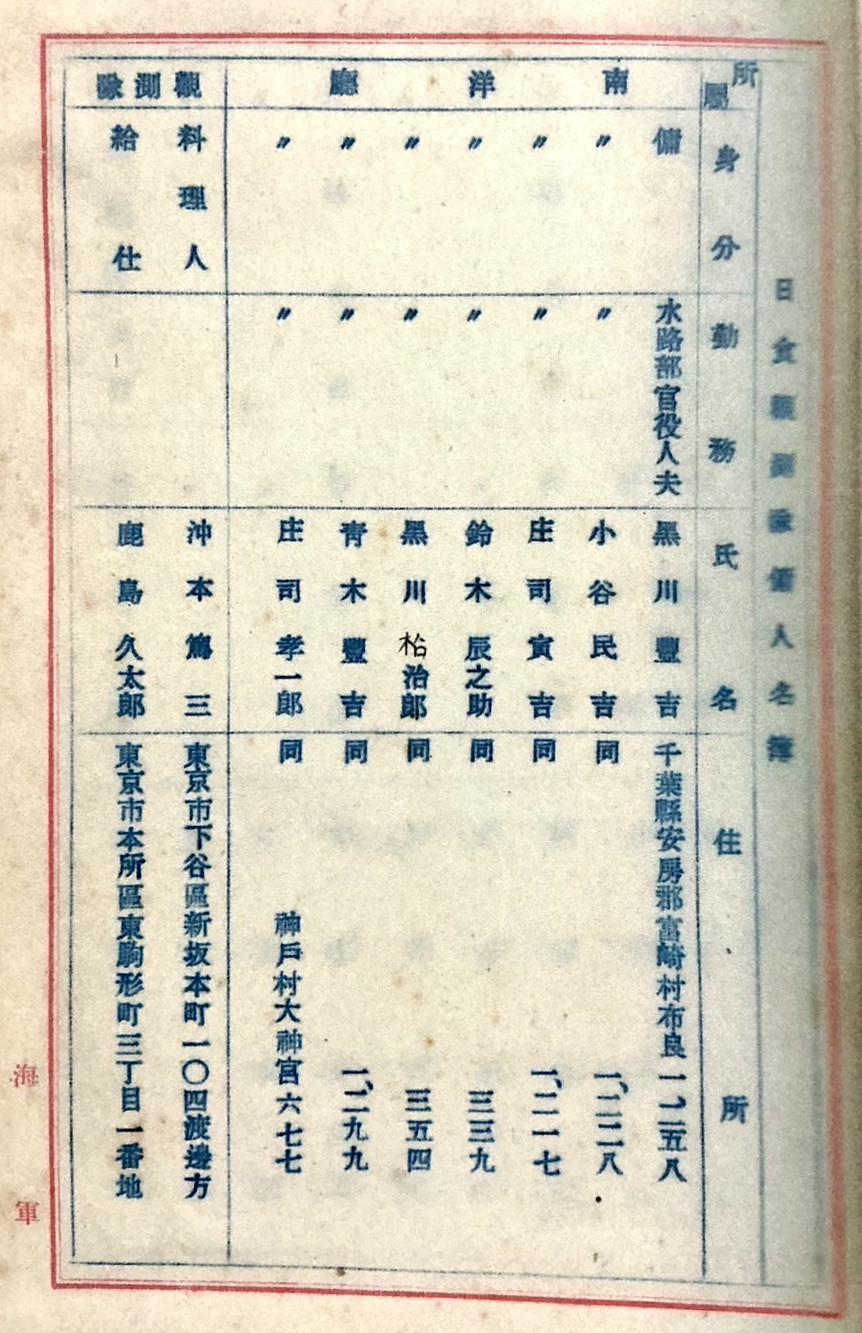 日食觀測隊傭人名簿
所屬 身分 勤務 氏名 住所
南洋廳
傭 水路部官役人夫 黑川豐吉 千葉縣安房郡富崎村布良一、二五八
〃 〃 小谷民吉 同 一、二二八
〃 〃 庄司寅吉 同 一、二一七
〃 〃 鈴木辰之助 同 三三九
〃 〃 黑川柗治郎 同 三五四
〃 〃 青木豐吉 同 一、二九九
〃 〃 庄司孝一郎 同 神戸村大神宮六七七
觀測隊
料理人 沖本篤三 東京市下谷區新坂本町一〇四渡邊方
給仕 鹿島久太郎 東京市本所區東駒形町三丁目一番地
海軍